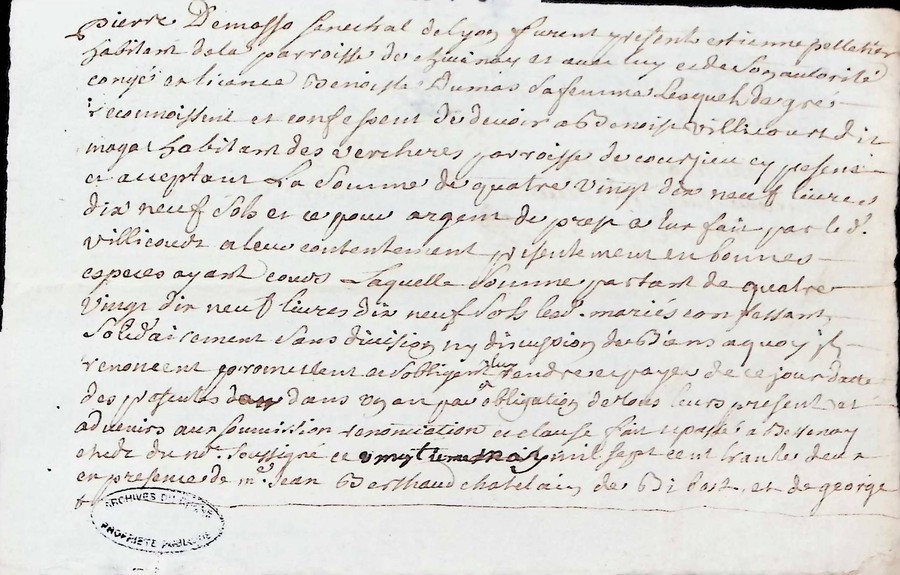 pierre Demasso senechal de lyon furent present estienne pelletier
habitant de la parroisse de chivinay et avec luy et de son autorité
congés et licance Benoiste Dumas sa femme Lesquels de gré
reconnoissent et confessent de devoir a Benoist Villicourt dit
magat habitant des vercheres parroisse de courzieu cy present
et acceptant La somme de quatre vingt dix neuf livres
dix neuf sols et ce pour argent de prest a lur fait par led.
villicourt a leur contentement presentement en bonnes
especes ayant cours Laquelle somme partant de quatre
vingt dix neuf livres dix neuf sols lesd. mariés confessant
solidairement sans division ny discusion de biens a quoy ils
renoncent promettent et s'obligent luy rendre et payer de ce jour datte
des presentes dans un an par obligation de tous leurs present et
advenirs aux soumission renonciation et clause fait et passé a Bessenay
etude du nore. soussigné ce may mil sept cent trante deux
en presence de me. Jean Berthaud chatelain de Bibost et de george
ARCHIVES DU RHONE
PROPRIETE PUBLIQUE